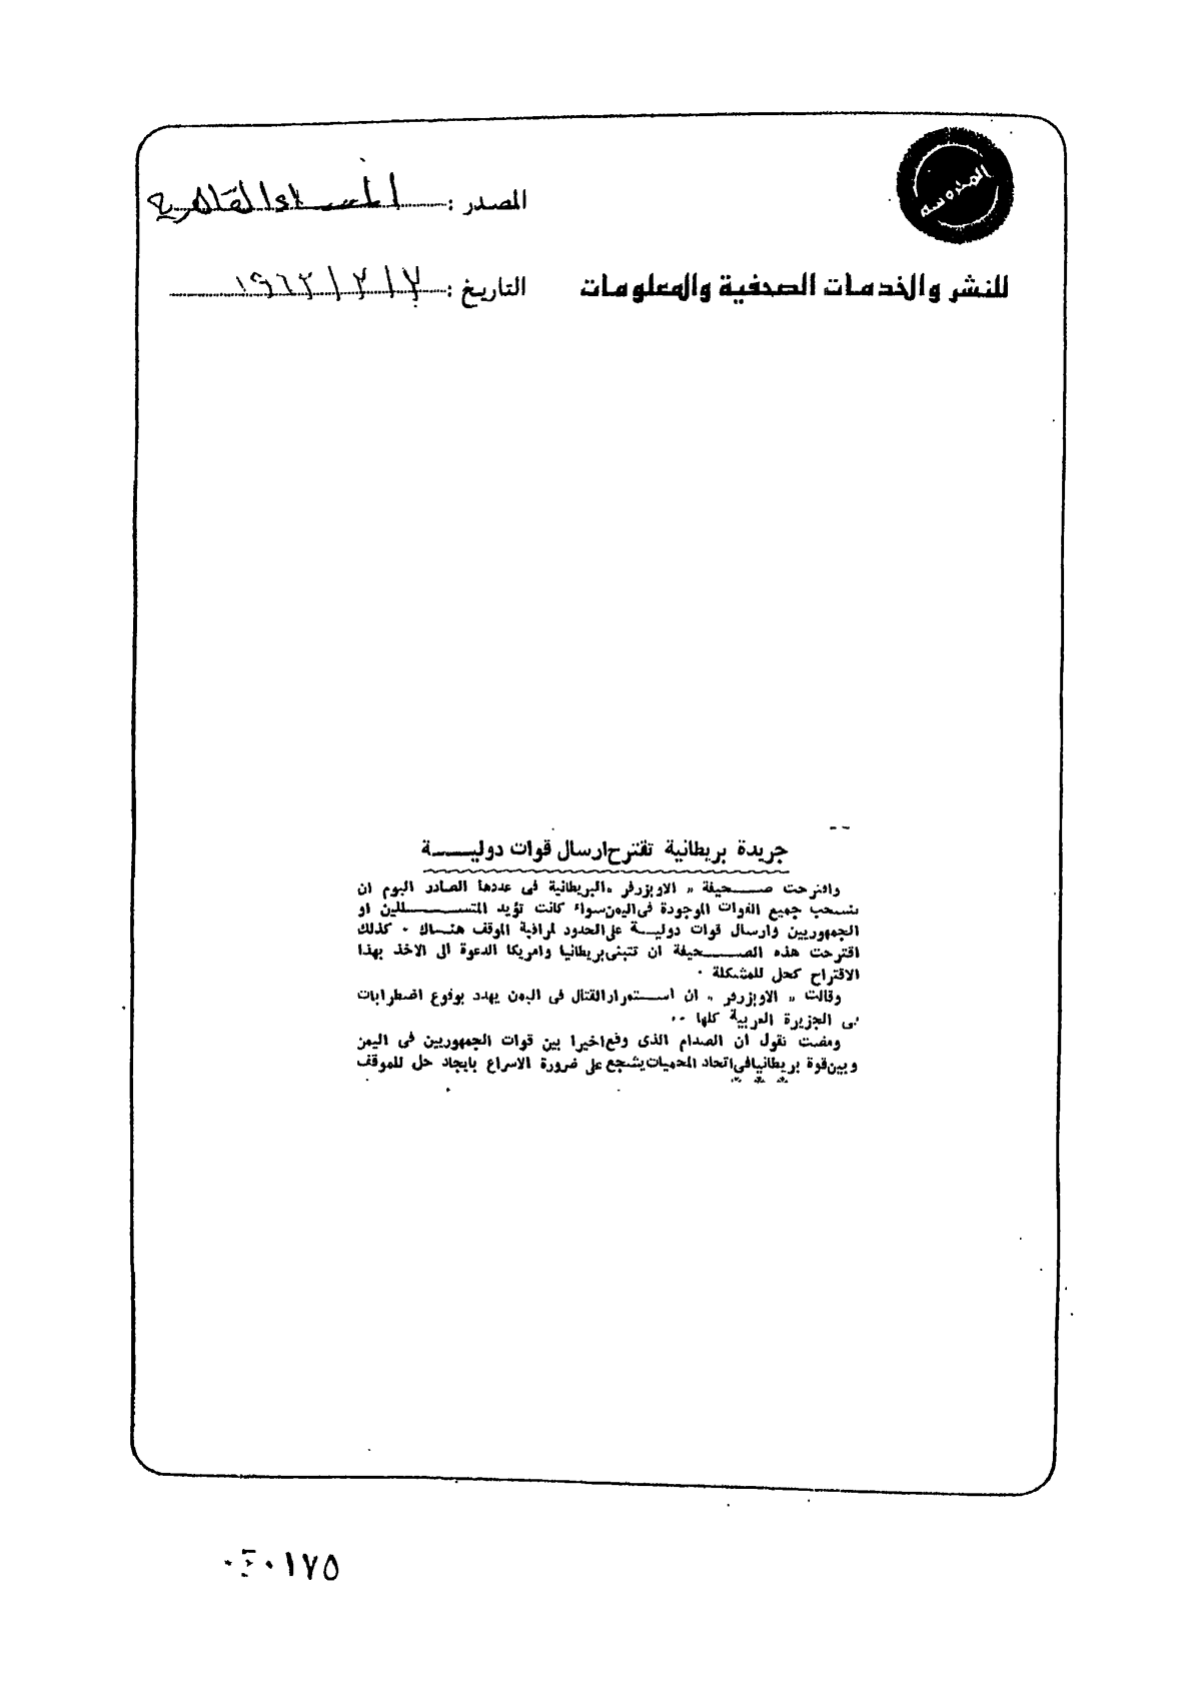 المحروسة
المصدر : المساء القاهرية
للنشر والخدمات الصحفية والمعلومات
التاريخ :
جريدة بريطانية تقترح ارسال قوات دوليـــــة
واقترحت صـــحيفة « الاوبزرفر » البريطانية فى عددها الصادر اليوم ان
تنسحب جميع القوات الموجودة فى اليمن سواء كانت تؤيد المتســــللين او
الجمهوريين وارسال قوات دوليـــة على الحدود لمراقبة الموقف هنـاك ٠ كذلك
اقترحت هذه الصـــحيفة ان تتبنى بريطانيا وامريكا الدعوة الى الاخذ بهذا
الاقتراح كحل للمشكلة ٠
وقالت « الاوبزرفر » ان اســتمرار القتال فى اليمن يهدد بوقوع اضطرابات
فى الجزيرة العربية كلها ٠٠
ومضت تقول ان الصدام الذى وقع اخيرا بين قوات الجمهوريين فى اليمن
وبين قوة بريطانيا فى اتحاد المحميات يشجع على ضرورة الاسراع بايجاد حل للموقف